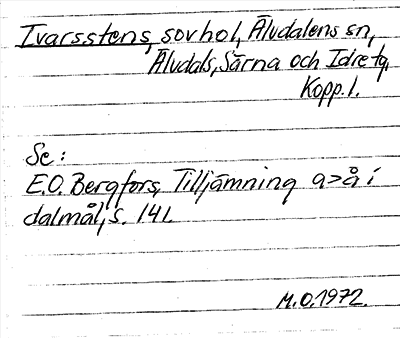 Ivarsstens, sovhol, Älvdalens sn,
Älvdals, Särna och Idre tg,
Kopp. l.
Se:
E.O. Bergfors, Tilljämning a>å i
dalmål, s. 141.
M.O. 1972.